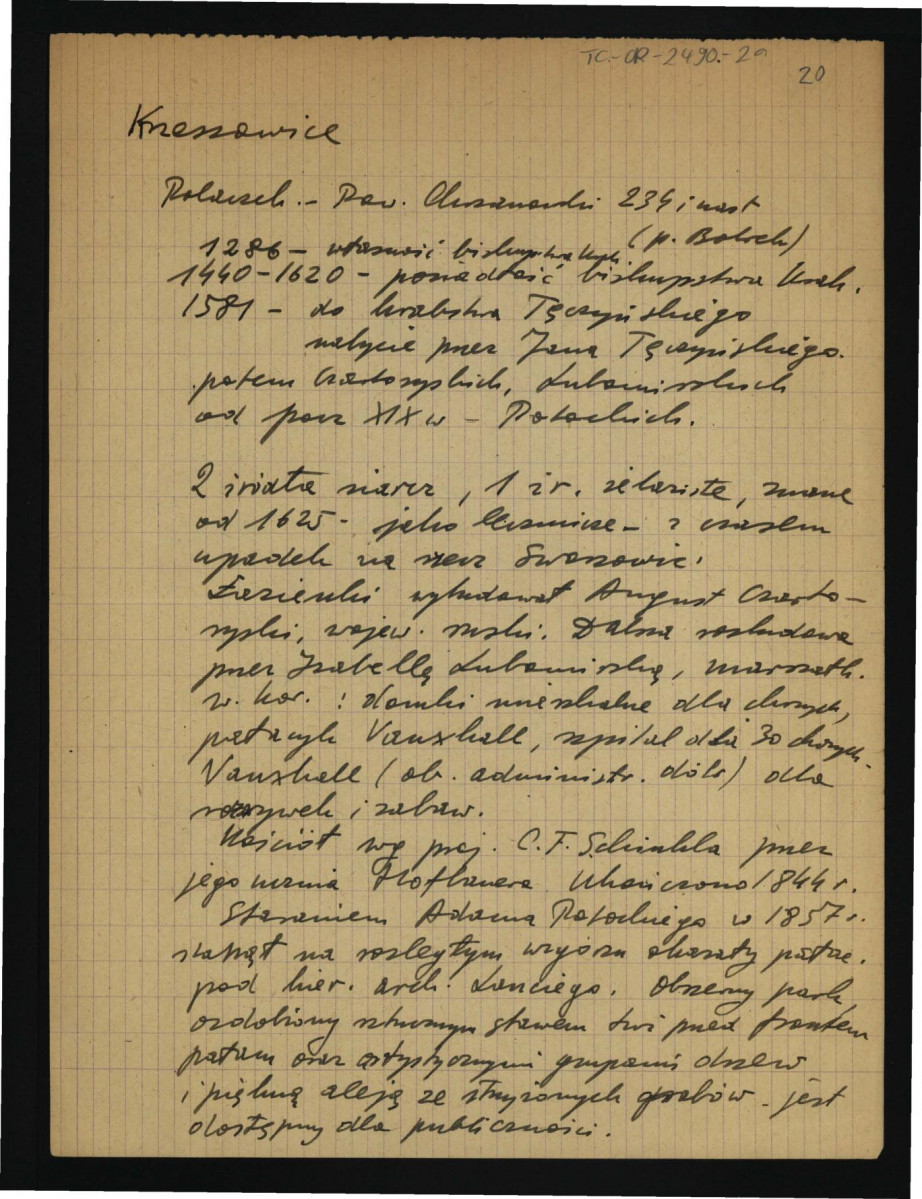 TC-OR-2490.-20
20
Krzeszowice
Polaczek. - Pow. Chrzanowski 234 i nast
(p. Bobrek)
1286 - własność biskupstwa krak.
1440-1620 - posiadłość biskupstwa krak.
1581 - do hrabstwa Tęczyńskiego
nabycie przez Jana Tęczyńskiego.
potem Czartoryskich, Lubomirskich
od pocz XIX w - Potockich.
2 źródła siarcz, 1 źr. żelaziste, znane
od 1625 - jako lecznicze - z czasem
upadek na rzecz Swoszowic.
Łazienki wybudował August Czarto-
ryski, wojew. ruski. Dalsza rozbudowa
przez Izabellę Lubomirską, marszałk.
w. kor. : domki mieszkalne dla chorych,
pałacyk Vauxhall, szpital dla 30 chorych.
Vauxhall (ob. administr. dóbr) dla
rozrywek i zabaw.
Kościół wg proj. C. F. Schinkla przez
jego ucznia Hoflanera. Ukończono 1844 r.
Staraniem Adama Potockiego w 1857 r.
stanął na rozległym wzgórzu okazały pałac.
pod kier. arch. Lanciego. Obszerny park,
ozdobiony sztucznym stawem tuż przed frontem
pałacu oraz artystycznymi grupami drzew
i piękną aleją ze strzyżonych grabów - jest
dostępny dla publiczności.